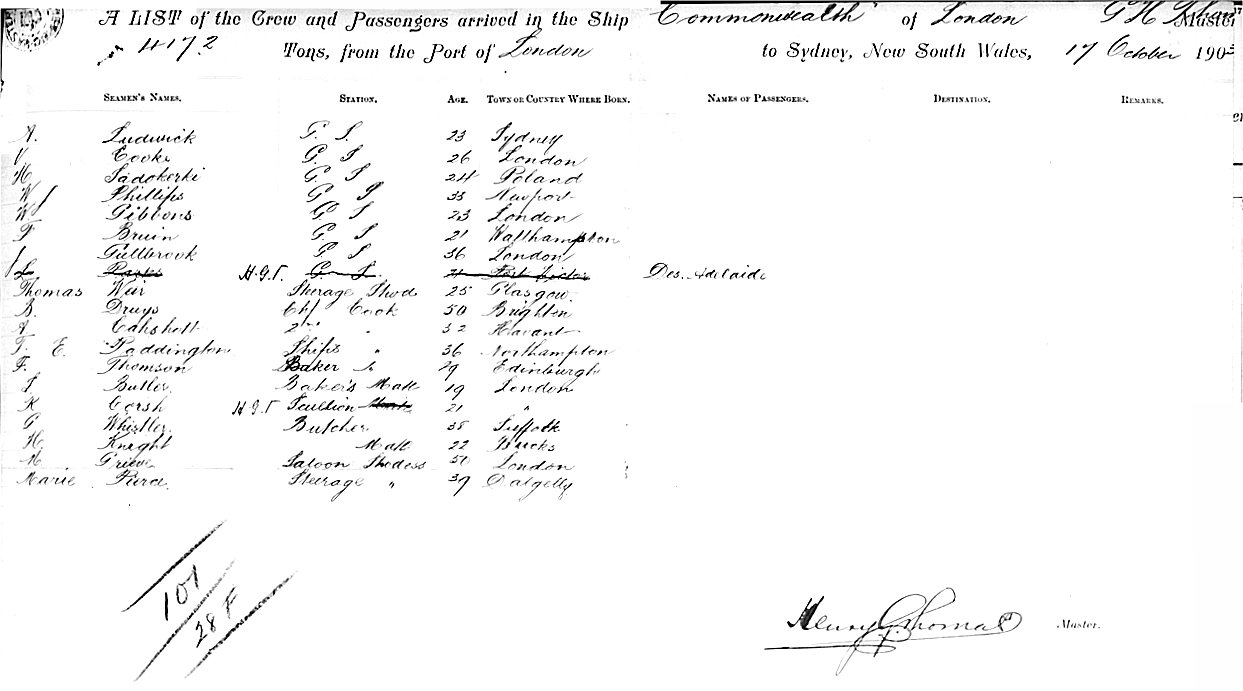 A LIST of the Crew and Passengers arrived in the Ship "Commonwealth" of London Master
4172 Tons, from the Port of London to Sydney, New South Wales, 17 October 190
SEAMEN'S NAMES. STATION. AGE. TOWN OR COUNTRY WHERE BORN. NAMES OF PASSENGERS. DESTINATION. REMARKS.
A. Ludwick G. S. 23 Sydney
V Cooke G. S 26 London
H Sadokerki G. S 24 Poland
W Phillips G S 33 Newport
W Gibbons G S 23 London
F Bruin G. S 21 Walthampton
Gullbrook G S 36 London
G. S. Des. Adelaide
Thomas Weir Steerage Stwd 25 Glasgow
B. Druys Chf Cook 50 Brighton
A Cahshott 2nd " 32 Havant
F. E. Paddington Ships " 36 Northampton
F. Thomson Baker 29 Edinburgh
J Butler Baker's Mate 19 London
K Corsh Scullion 21 "
G Whistler Butcher 38 Suffolk
H. Knight Mate 22 Bucks
M Grieve Saloon Stwdess 50 London
Marie Pierce Steerage " 39 Dalgelly
107
28 F
Henry G. Thomas Master.